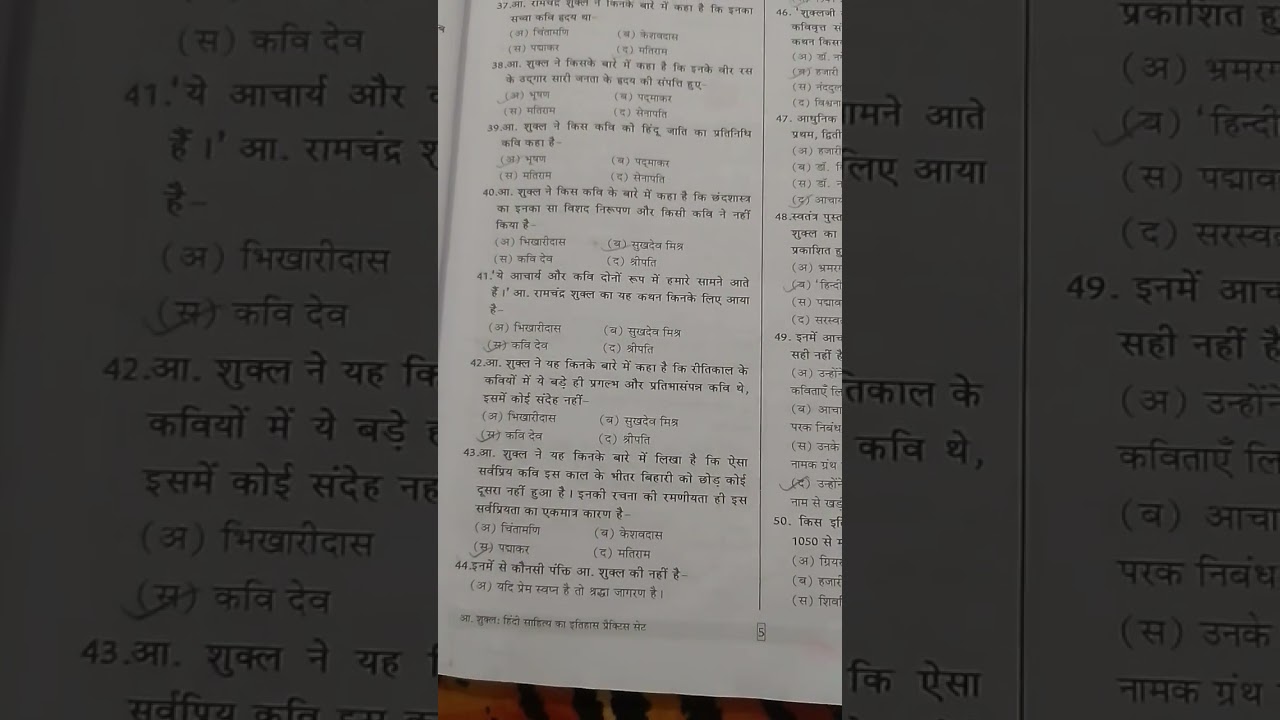 37.आ. रामचंद्र शुक्ल ने किनके बारे में कहा है कि इनका
सच्चा कवि हृदय था-
(अ) चिंतामणि (ब) केशवदास
(स) पद्माकर (द) मतिराम
38.आ. शुक्ल ने किसके बारे में कहा है कि इनके वीर रस
के उद्गार सारी जनता के हृदय की संपत्ति हुए-
(अ) भूषण (ब) पद्माकर
(स) मतिराम (द) सेनापति
39.आ. शुक्ल ने किस कवि को हिंदू जाति का प्रतिनिधि
कवि कहा है-
(अ) भूषण (ब) पद्माकर
(स) मतिराम (द) सेनापति
40.आ. शुक्ल ने किस कवि के बारे में कहा है कि छंदशास्त्र
का इनका सा विशद निरूपण और किसी कवि ने नहीं
किया है-
(अ) भिखारीदास (ब) सुखदेव मिश्र
(स) कवि देव (द) श्रीपति
41.'ये आचार्य और कवि दोनों रूप में हमारे सामने आते
हैं।' आ. रामचंद्र शुक्ल का यह कथन किनके लिए आया
है-
(अ) भिखारीदास (ब) सुखदेव मिश्र
(स) कवि देव (द) श्रीपति
42.आ. शुक्ल ने यह किनके बारे में कहा है कि रीतिकाल के
कवियों में ये बड़े ही प्रगल्भ और प्रतिभासंपन्न कवि थे,
इसमें कोई संदेह नहीं-
(अ) भिखारीदास (ब) सुखदेव मिश्र
(स) कवि देव (द) श्रीपति
43.आ. शुक्ल ने यह किनके बारे में लिखा है कि ऐसा
सर्वप्रिय कवि इस काल के भीतर बिहारी को छोड़ कोई
दूसरा नहीं हुआ है। इनकी रचना की रमणीयता ही इस
सर्वप्रियता का एकमात्र कारण है-
(अ) चिंतामणि (ब) केशवदास
(स) पद्माकर (द) मतिराम
44.इनमें से कौनसी पंक्ति आ. शुक्ल की नहीं है-
(अ) यदि प्रेम स्वप्न है तो श्रद्धा जागरण है।
आ. शुक्ल: हिंदी साहित्य का इतिहास प्रैक्टिस सेट
5
46. 'शुक्लजी
कविवृत्त सं
कथन किस
(अ) डॉ. न
(ब) हजारी
(स) नंददुल
(द) विश्वना
47. आधुनिक
प्रथम, द्विती
(अ) हजारी
(ब) डॉ.
(स) डॉ. न
(द) आचार्य
48.स्वतंत्र पुस्त
शुक्ल का
प्रकाशित हु
(अ) भ्रमरग
(ब) 'हिन्दी
(स) पद्माव
(द) सरस्व
49. इनमें आच
सही नहीं है
(अ) उन्होंने
कविताएँ लि
(ब) आचा
परक निबंध
(स) उनके
नामक ग्रंथ
(द) उन्होंने
नाम से खड़
50. किस इति
1050 से म
(अ) ग्रियर
(ब) हजार
(स) शिवसिं
(स) कवि देव
41.'ये आचार्य और
हैं।' आ. रामचंद्र
है-
(अ) भिखारीदास
(स) कवि देव
42.आ. शुक्ल ने यह कि
कवियों में ये बड़े ह
इसमें कोई संदेह नह
(अ) भिखारीदास
(स) कवि देव
43.आ. शुक्ल ने यह
सर्वप्रिय कवि इस क
ामने आते
लिए आया
तिकाल के
कवि थे,
कि ऐसा
प्रकाशित हु
(अ) भ्रमर
(ब) 'हिन्दी
(स) पद्माव
(द) सरस्व
49. इनमें आच
सही नहीं है
(अ) उन्होंने
कविताएँ लि
(ब) आचा
परक निबंध
(स) उनके
नामक ग्रंथ